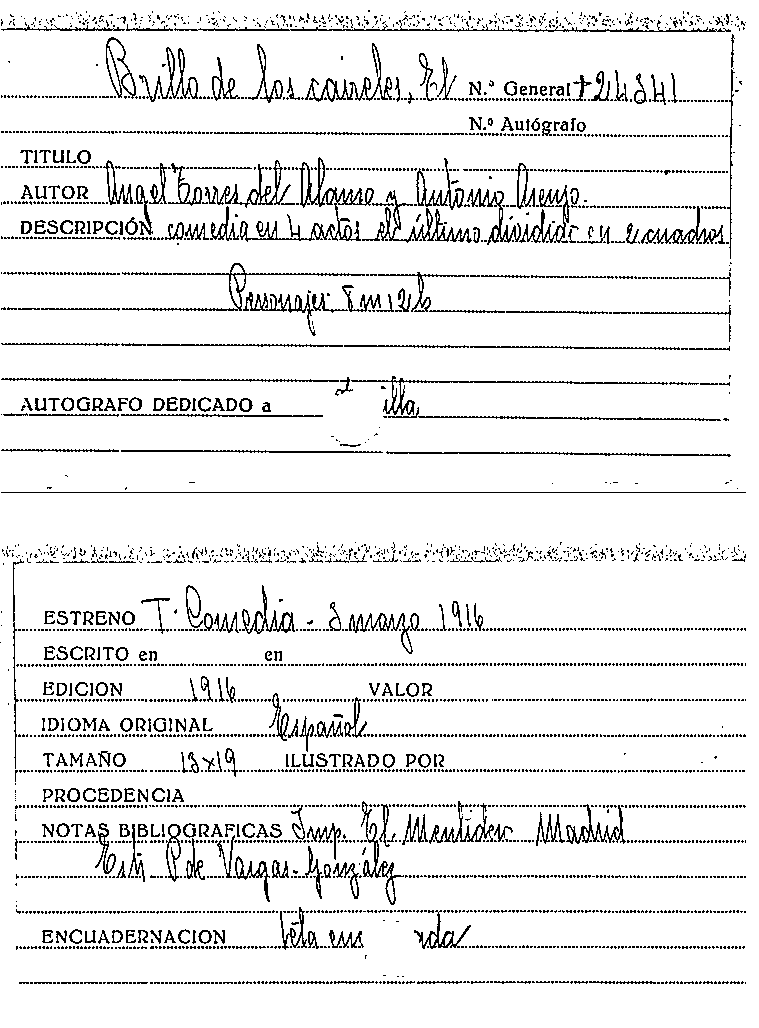 Brillo de los caireles, El N.º General + 24341
N.º Autógrafo
TITULO
AUTOR Angel Torres del Alamo y Antonio Asenjo.
DESCRIPCIÓN comedia en 4 actos el último dividido en 2 cuadros
Personajes 8 m 12 h
AUTOGRAFO DEDICADO a illa
ESTRENO T. Comedia - 3 marzo 1916
ESCRITO en en
EDICION 1916 VALOR
IDIOMA ORIGINAL Español
TAMAÑO 13x19 ILUSTRADO POR
PROCEDENCIA
NOTAS BIBLIOGRAFICAS Imp. El Mentidero Madrid
P de Vargas-González
ENCUADERNACION tela